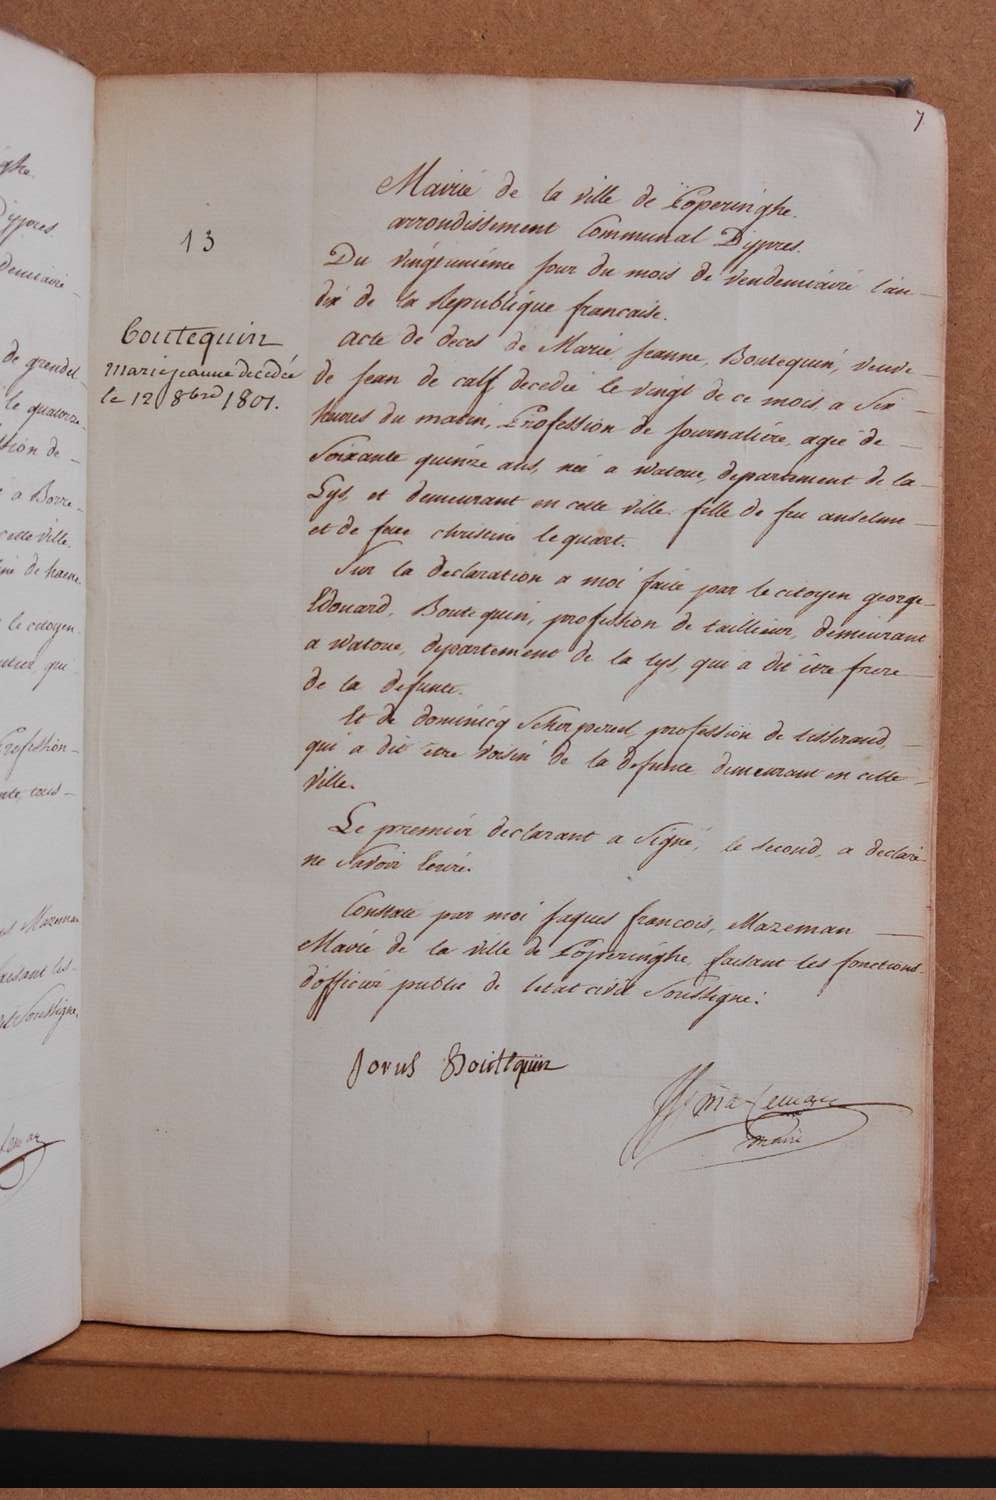 7
13
Boutequin
marie jeanne decedée
le 12 8bre 1801.
Mairie de la ville de Poperinghe.
arrondissement Communal Dÿpres.
Du vingtunième jour du mois de vendemiaire l'an
dix de la Republique francaise.
Acte de deces de Marie Jeanne, Boutequin, veuve
de Jean de calf, decedée le vingt de ce mois, a Six
heures du matin, Profession de journaliére, ageé de
Soixante quinze ans, née a watoue, departement de la
Lys, et demeurant en cette ville. fille de feu anselme
et de feue christine lequart.
Sur la declaration a moi faite par le citoyen george
Edouard, Boutequin, profession de taillieur, demeurant
a watoue, departement de la lys, qui a dit être frere
de la defunte.
Et de dominicq Scherpereel, profession de tisserand,
qui a dit être voisin de la defunte, demeurant en cette
ville.
Le premier declarant a Signé, le second, a declaré
ne Savoir Ecrire.
Constaté par moi Jaques francois, Mazeman
Mairie de la ville de Poperinghe, faisant les fonctions
d'officier public de letat civil Soussigné.
Jorus Boutequin
Mazeman
maire
ghe.
Dÿpres.
demiaire
de grendel
le quatorze
ssion de
a Borre
cette ville.
de haene
le citoyen
qui
Profession
Mazeman
faisant les
Soussigné,